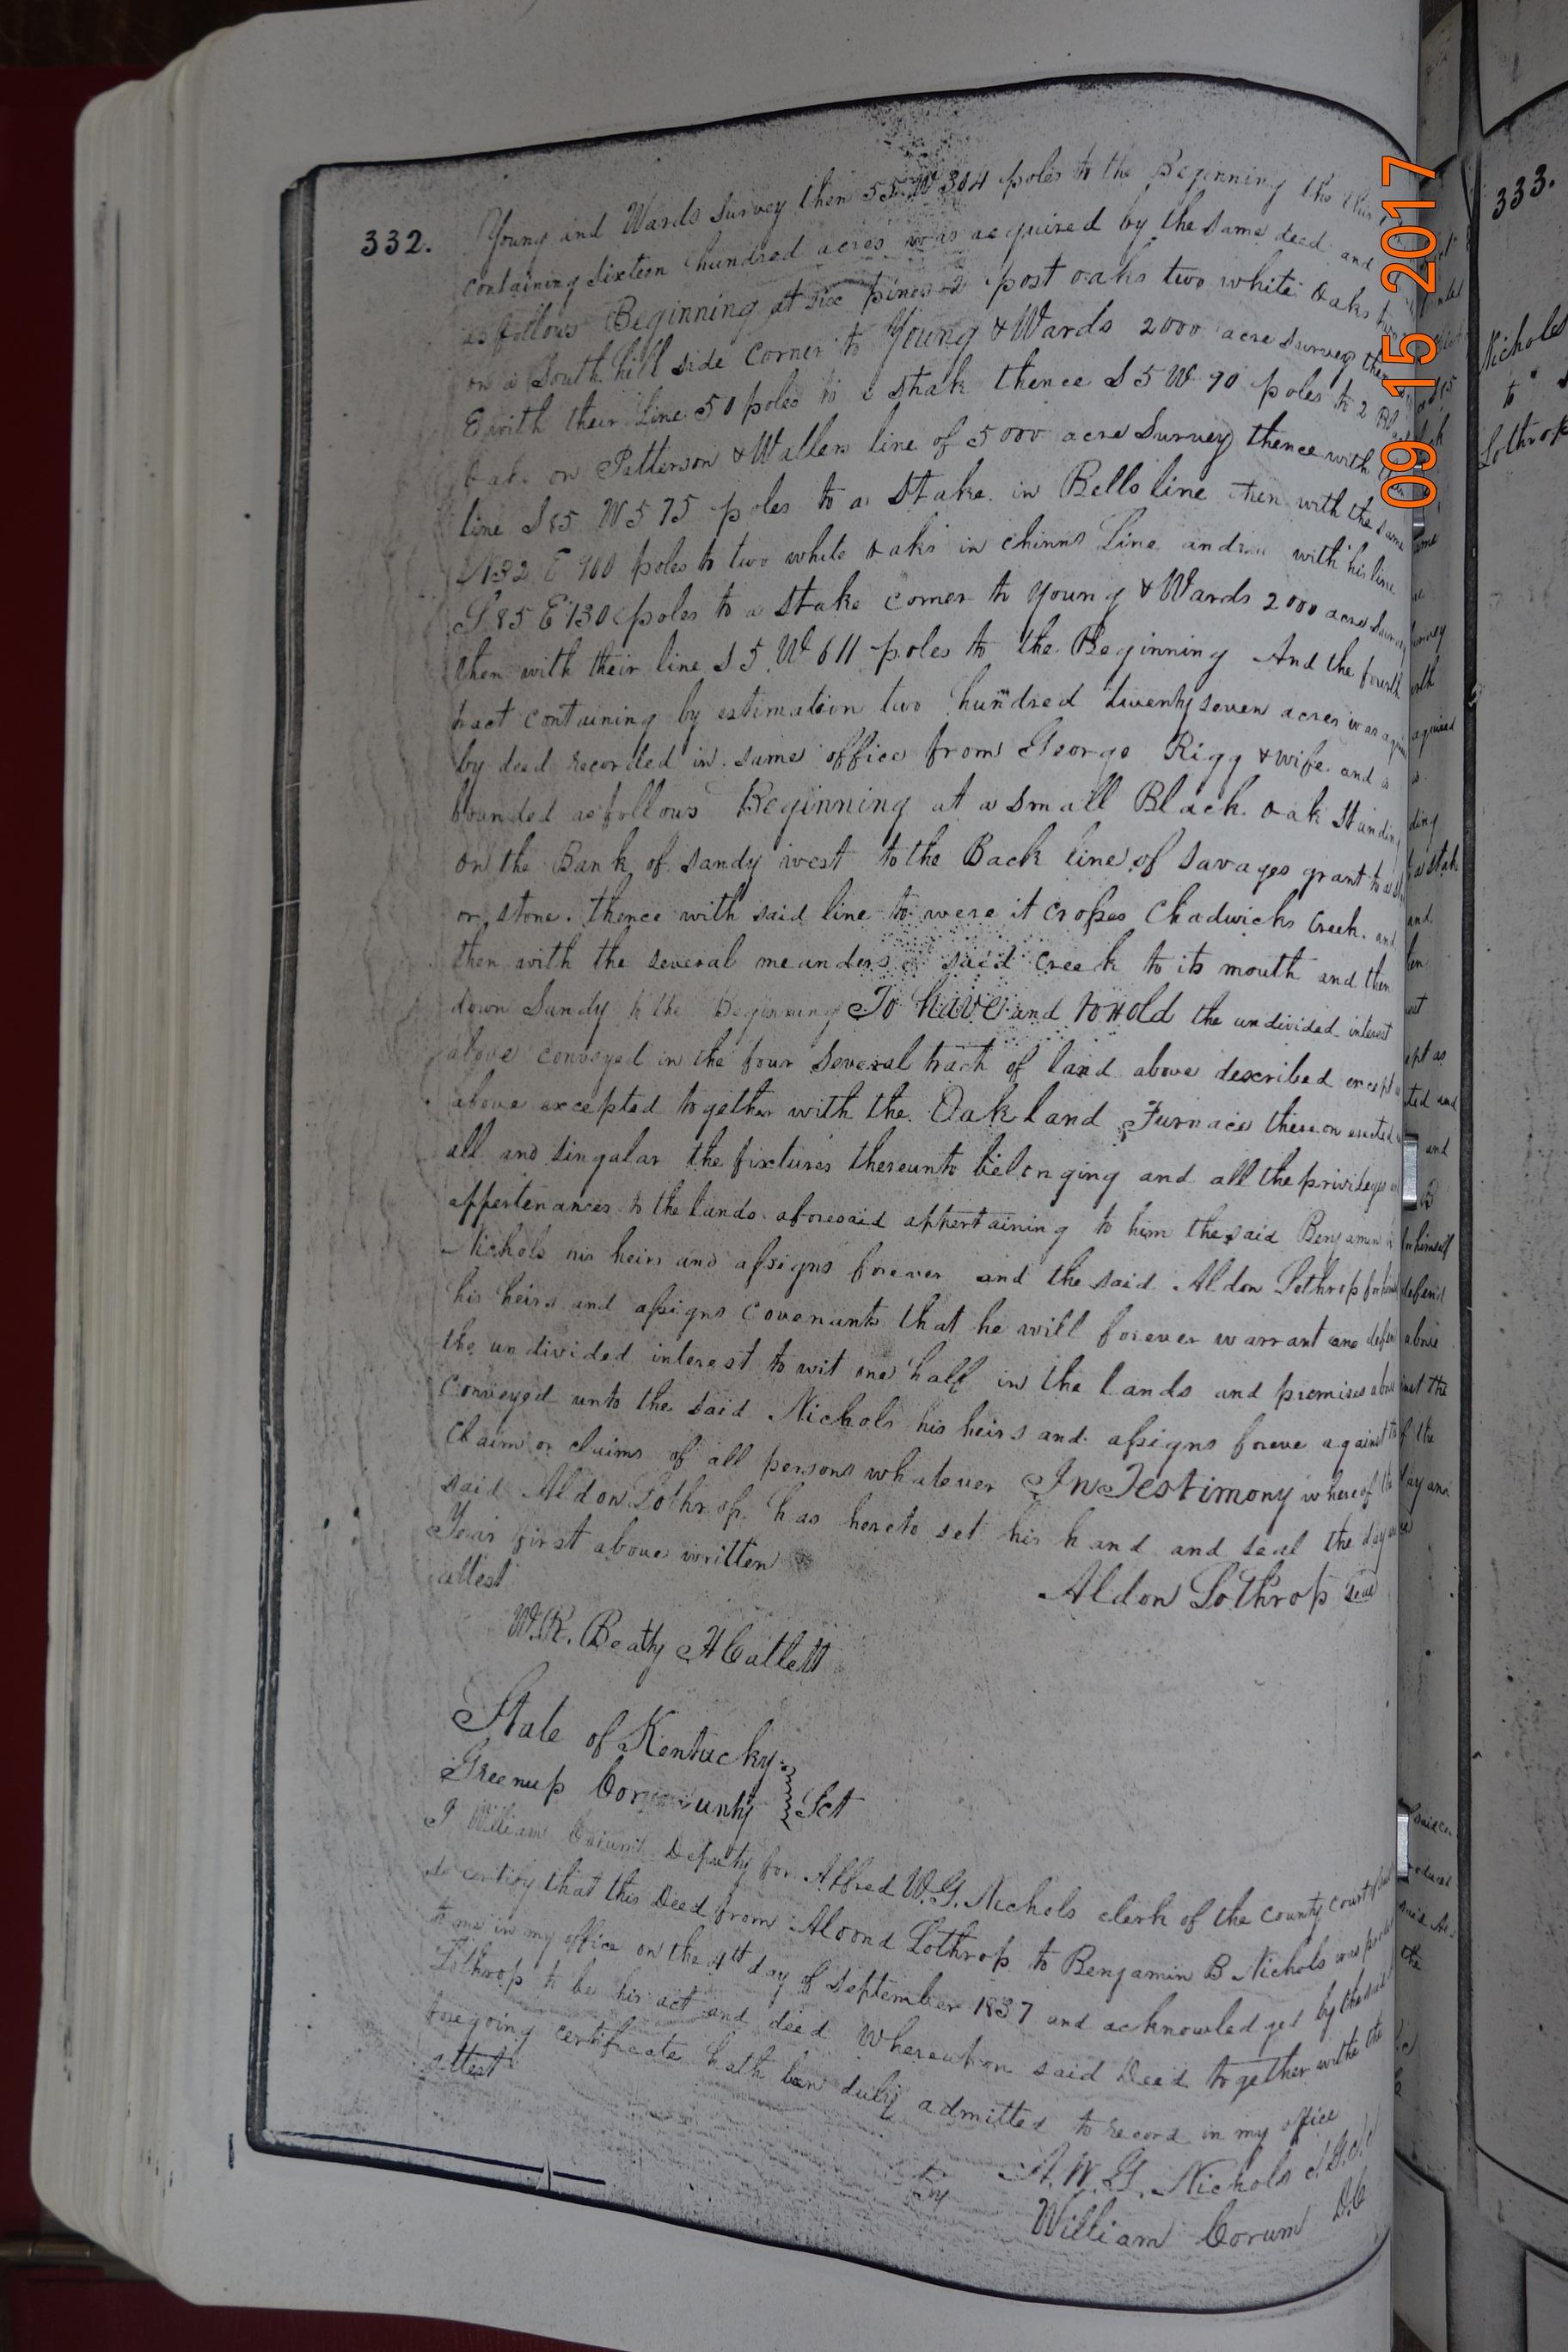 332.
Young and Wards Survey then S 5 W 304 poles to the Beginning the
containing Sixteen hundred acres was acquired by the same deed and
as follows Beginning at six pines 2 post oaks two white oaks
on a South hill side corner to Young & Wards 2000 acre Survey
E with their line 50 poles to a stak thence S 5 W 90 poles to 2
oaks on Patterson & Wallers line of 5000 acre Survey thence with
line S 85 W 575 poles to a Stake in Bells line then with the same
N 32 E 900 poles to two white oaks in chinns Line and with his line
S 85 E 130 poles to a Stake corner to Young & Wards 2000 acre Survey
then with their line S 5 W 611 poles to the Beginning And the fourth
tract containing by estimation two hundred twenty seven acres was
by deed recorded in same office from George Rigg & wife and is
bounded as follows Beginning at a small Black oak Standing
on the Bank of sandy west to the Back line of savages grant to a
or stone. thence with said line to were it crosses Chadwicks Creek and
then with the several meanders of said creek to its mouth and then
down Sandy to the Beginning To have and to Hold the undivided interest
above conveyed in the four several tract of land above described except
above excepted together with the Oakland Furnace thereon erected
all and singular the fixtures thereunto belonging and all the privileges
appertenances to the lands aforesaid appertaining to him the said Benjamin
Nichols his heirs and assigns forever and the said Aldon Lothrop for himself
his heirs and assigns covenants that he will forever warrant and defend
the undivided interest to wit one half in the lands and premises above
conveyed unto the said Nichols his heirs and assigns foreve against the
Claim or claims of all persons whatever In Testimony whereof the
said Aldon Lothrop has hereto set his hand and seal the day and
Year first above written
attest
Aldon Lothrop Seal
W. R. Beaty H Catlett
State of Kentucky
Greenup County Sct
I William Corum Deputy for Alfred W. G. Nichols clerk of the county court
do certify that this Deed from Aloond Lothrop to Benjamin B Nichols was
to me in my office on the 4th day of September 1837 and acknowledged by the said
Lothrop to be his act and deed Whereupon said Deed together withe the
foregoing certificate hath ben duly admitted to record in my office
attest
A. W. G. Nichols
By William Corum D.C
333.
Nichols
to
Lothrop
09 15 2017